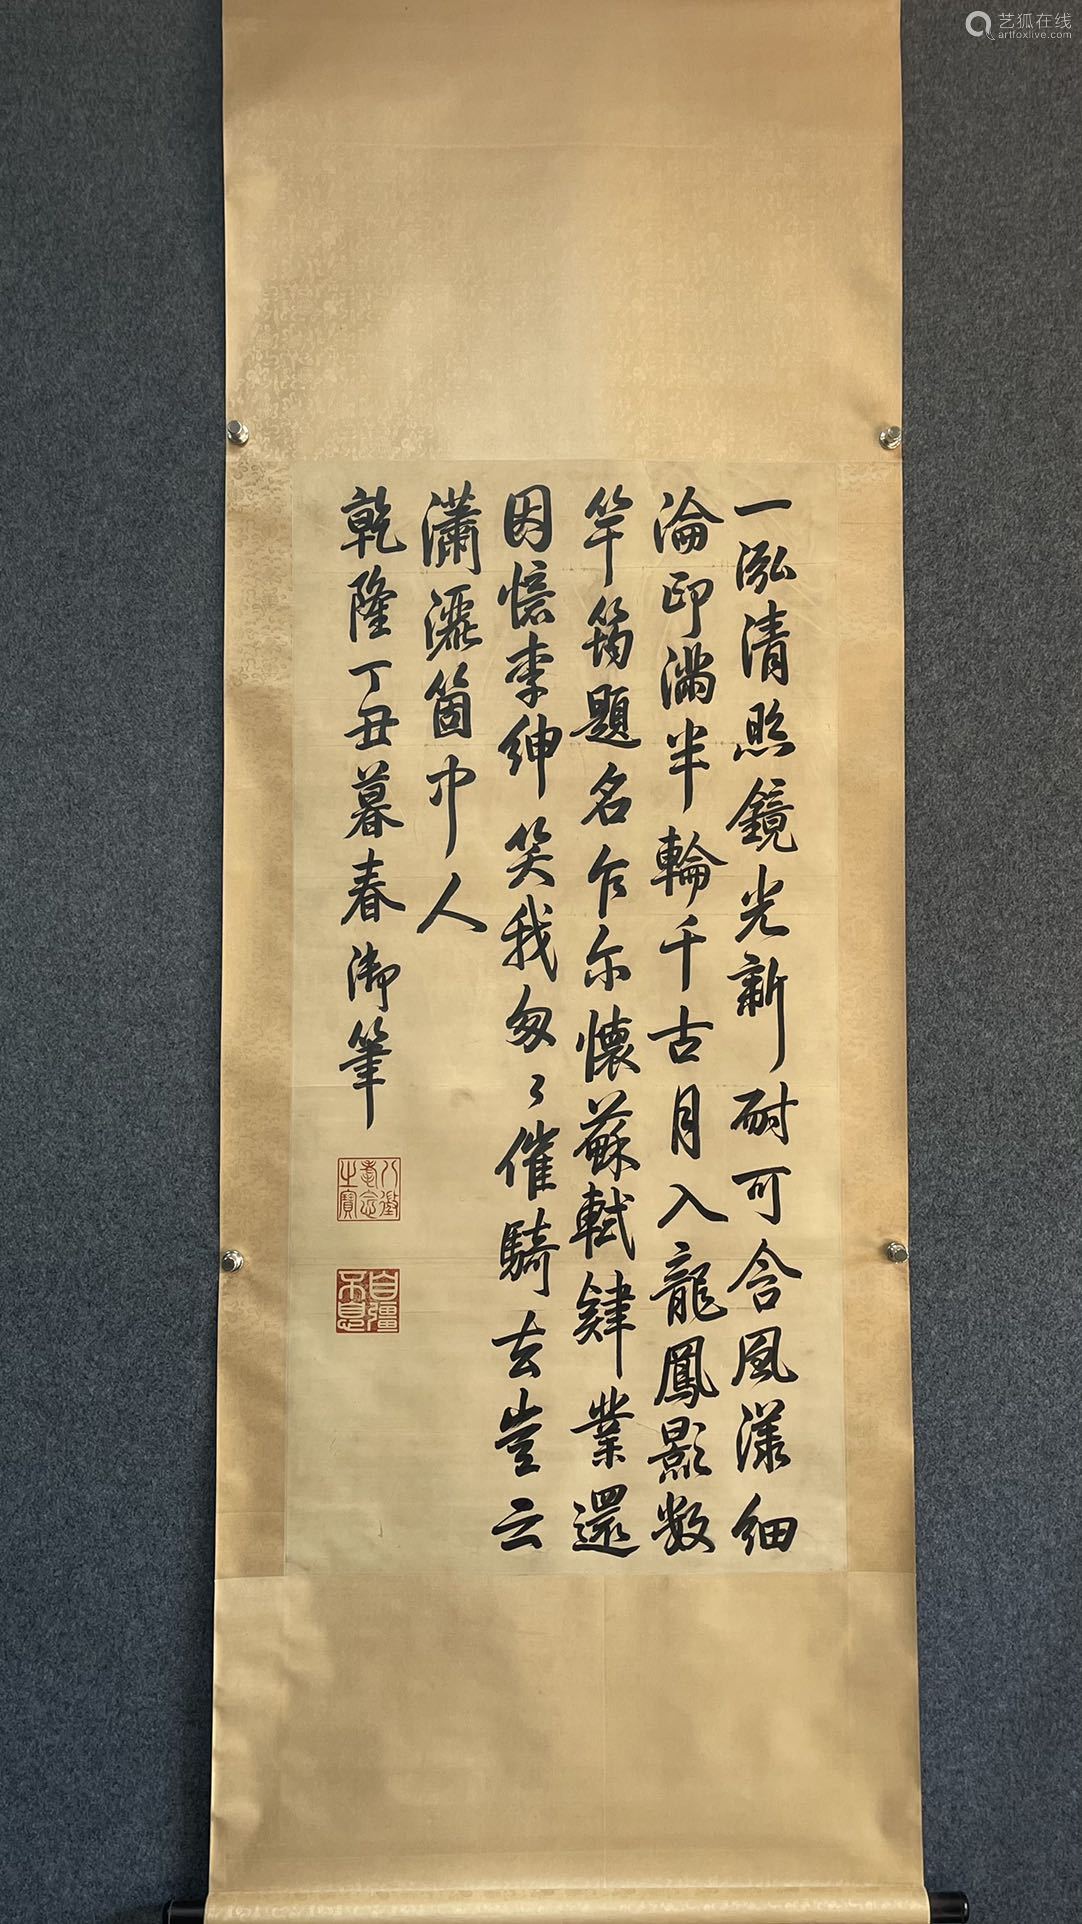 一泓清照鏡光新耐可含風漾細
淪印滿半輪千古月入龍鳳影數
竿筠題名乍尔懷蘇軾肄業還
因憶李紳笑我匆々催騎去豈云
瀟灑箇中人
乾隆丁丑暮春御筆
八徵耄念之寶
自彊不息
艺狐在线
artfoxlive.com